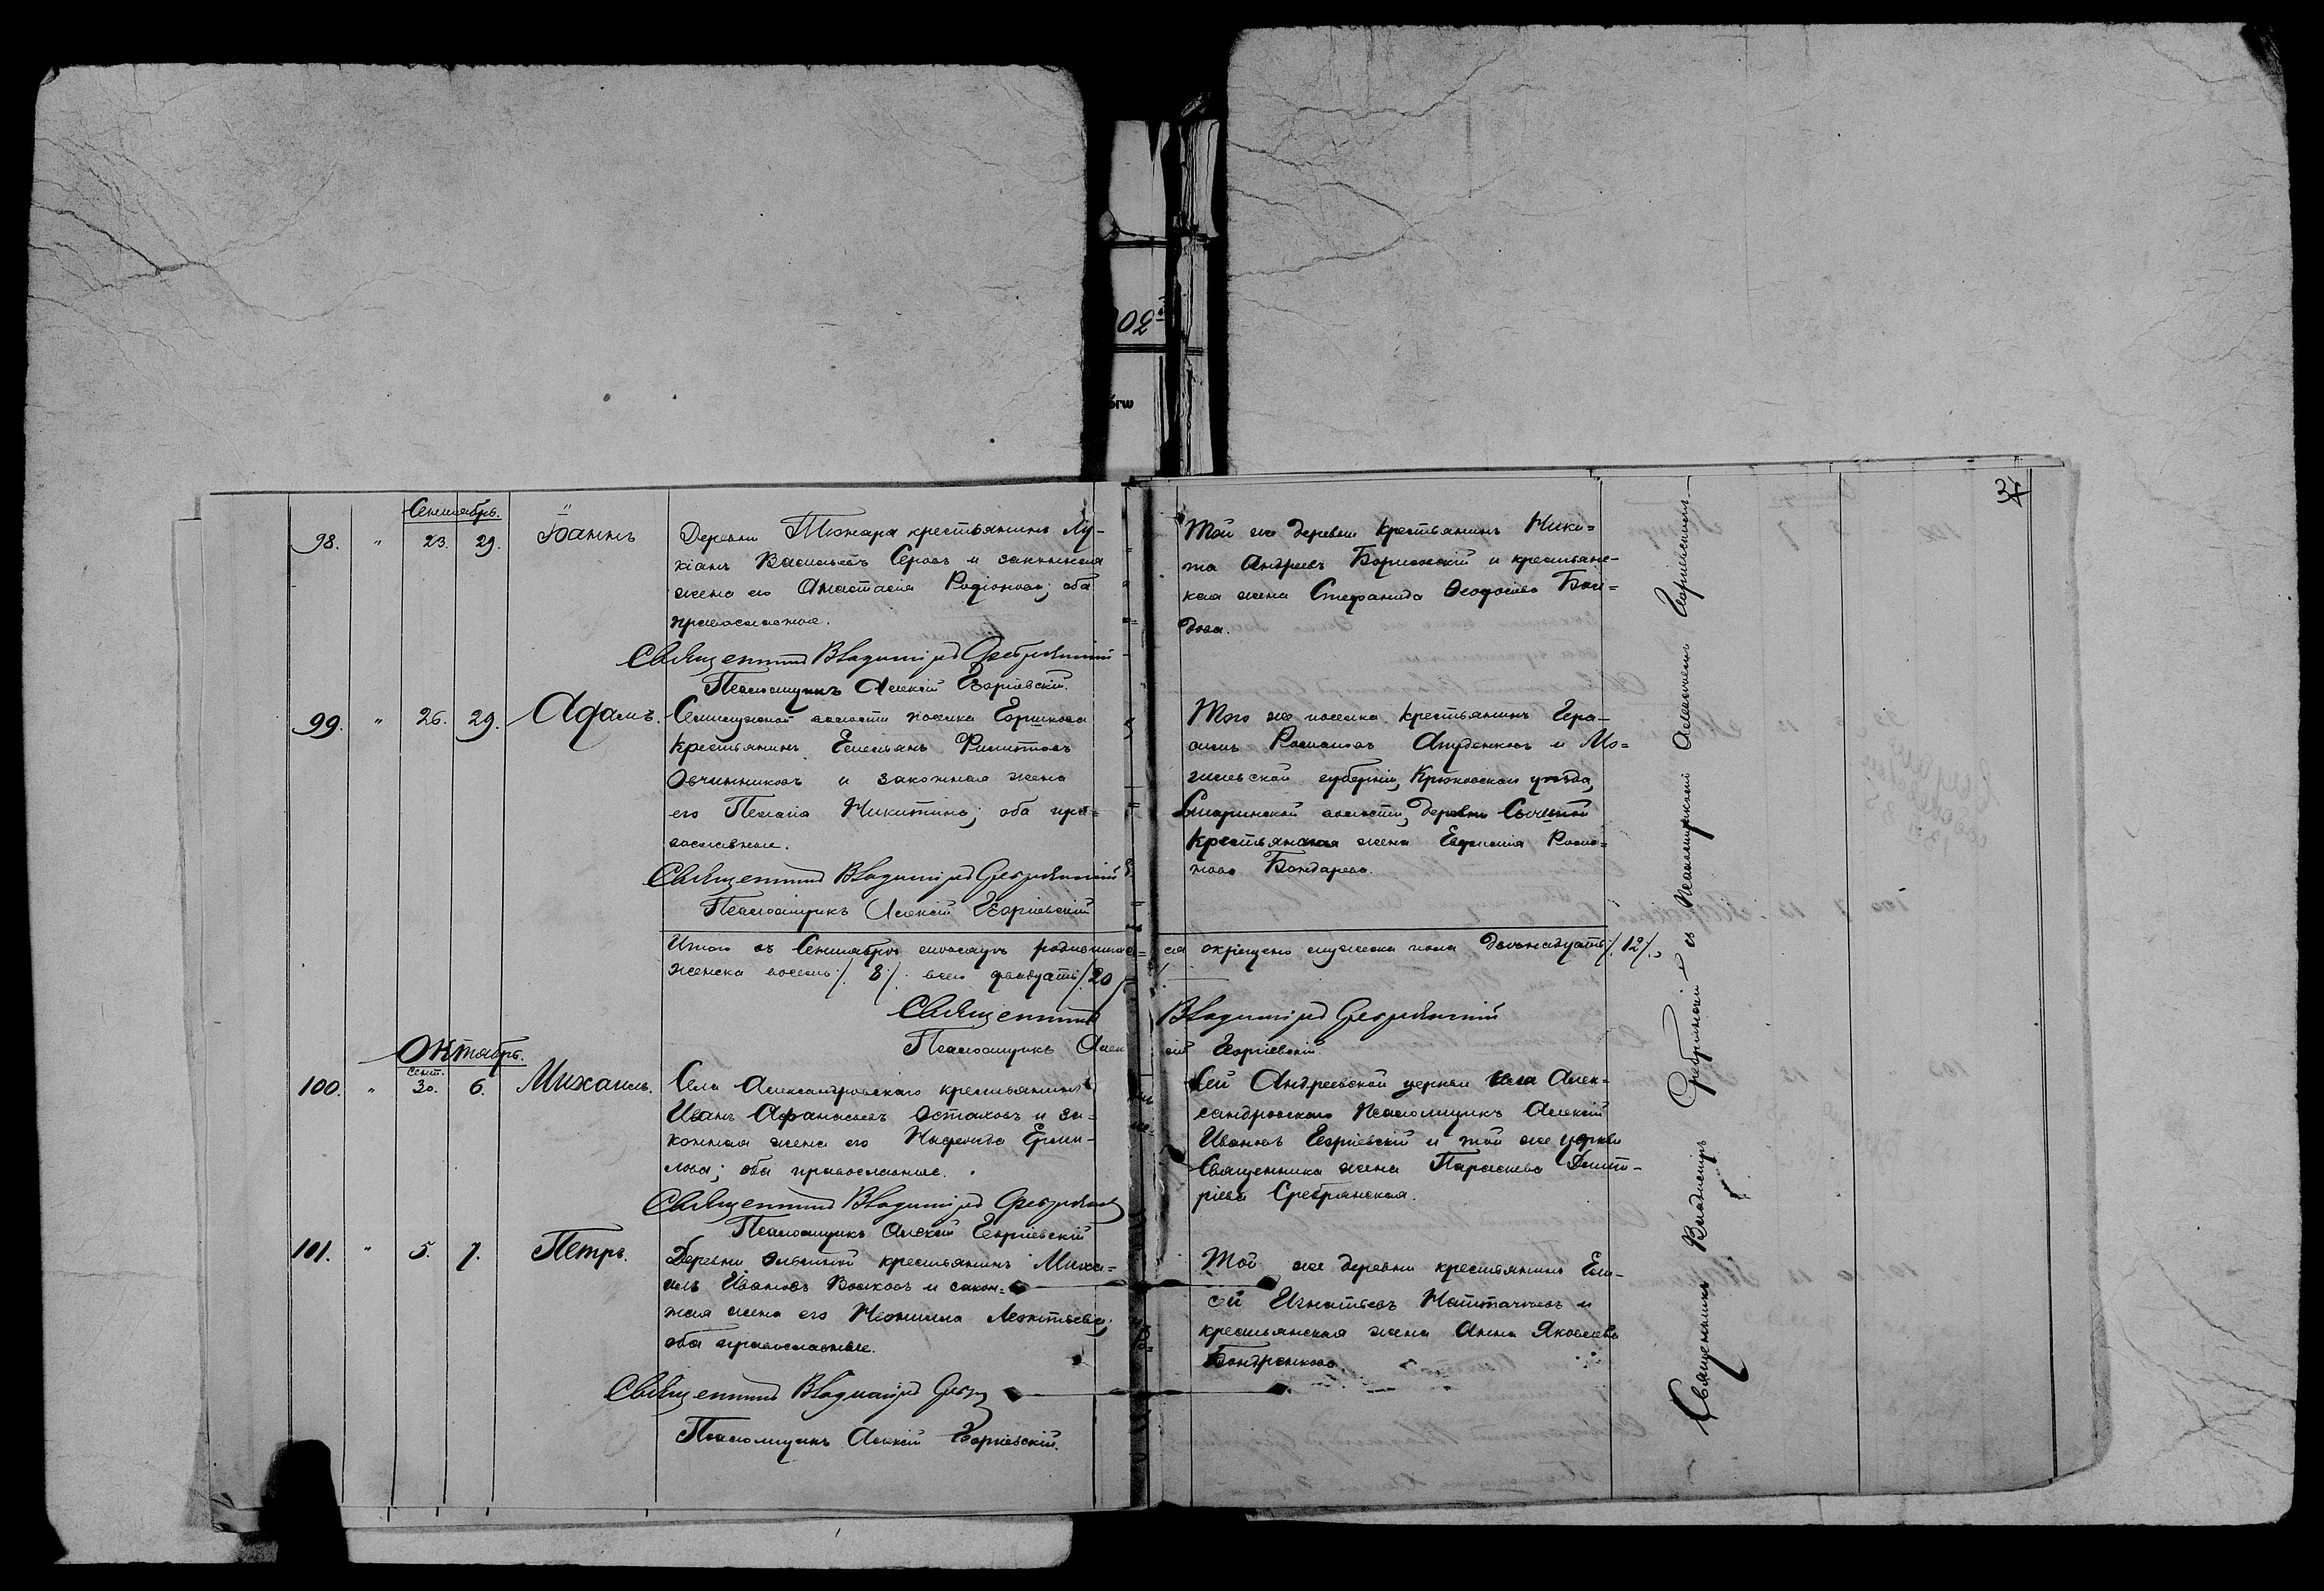 37
Сентябрь.
98. " 23. 29. Іоаннъ
Деревни Тюкара крестьянинъ Лу-
кіанъ Васильевъ Серовъ и законная
жена его Анастасія Родіонова; оба
православные.
Священникъ Владиміръ Сребрянскій
Псаломщикъ Алексій Георгіевскій.
Той же деревни крестьянинъ Ники=
та Андреевъ Борисовскій и крестьянс-
кая жена Стефанида Ѳеофосіева Бой=
дова.
99. " 26. 29. Адамъ.
волости поселка Горикова
крестьянинъ Емельянъ Филиповъ
Овчинниковъ и законная жена
его Пелагія Никитина; оба пра=
вославные.
Священникъ Владиміръ Сребрянскій
Псаломщикъ Алексій Георгіевскій
Того же поселка крестьянинъ Гера-
симъ Романовъ и Мо=
гилевской губерніи, уѣзда,
волости, деревни
крестьянская жена Евфимія Рома=
нова Бондарева.
Итого въ Сентябрѣ мѣсяцѣ родившихся окрещено мужеска пола двѣнадцать /.12/.,
женска восемь /.8/. всего двадцать /.20/.
Священникъ Владиміръ Сребрянскій
Псаломщикъ Алексій Георгіевскій
Октябрь.
Сент.
100. " 30. 6. Михаилъ.
Села Александровскаго крестьянинъ
Иванъ Афанасьевъ Остаховъ и за=
конная жена его Ерми-
лова; оба православные.
Священникъ Владиміръ Сребрянскій
Псаломщикъ Алексій Георгіевскій
Сей Андреевской церкви села Алек-
сандровскаго Псаломщикъ Алексій
Ивановъ Георгіевскій и той же церкви
Священника жена Параскева Димит-
ріева Сребрянская.
101. " 5. 7. Петръ.
Деревни крестьянинъ Миха=
илъ Ивановъ Волковъ и закон=
ная жена его Неонилла Леонтьева;
оба православные.
Священникъ Владиміръ Сребр
Псаломщикъ Алексій Георгіевскій.
Той же деревни крестьянинъ Ели-
сей Игнатьевъ и
крестьянская жена Анна Яковлева
Бондренкова.
Священникъ Владиміръ Сребрянскій съ Псаломщикомъ Алексіемъ Георгіевскимъ